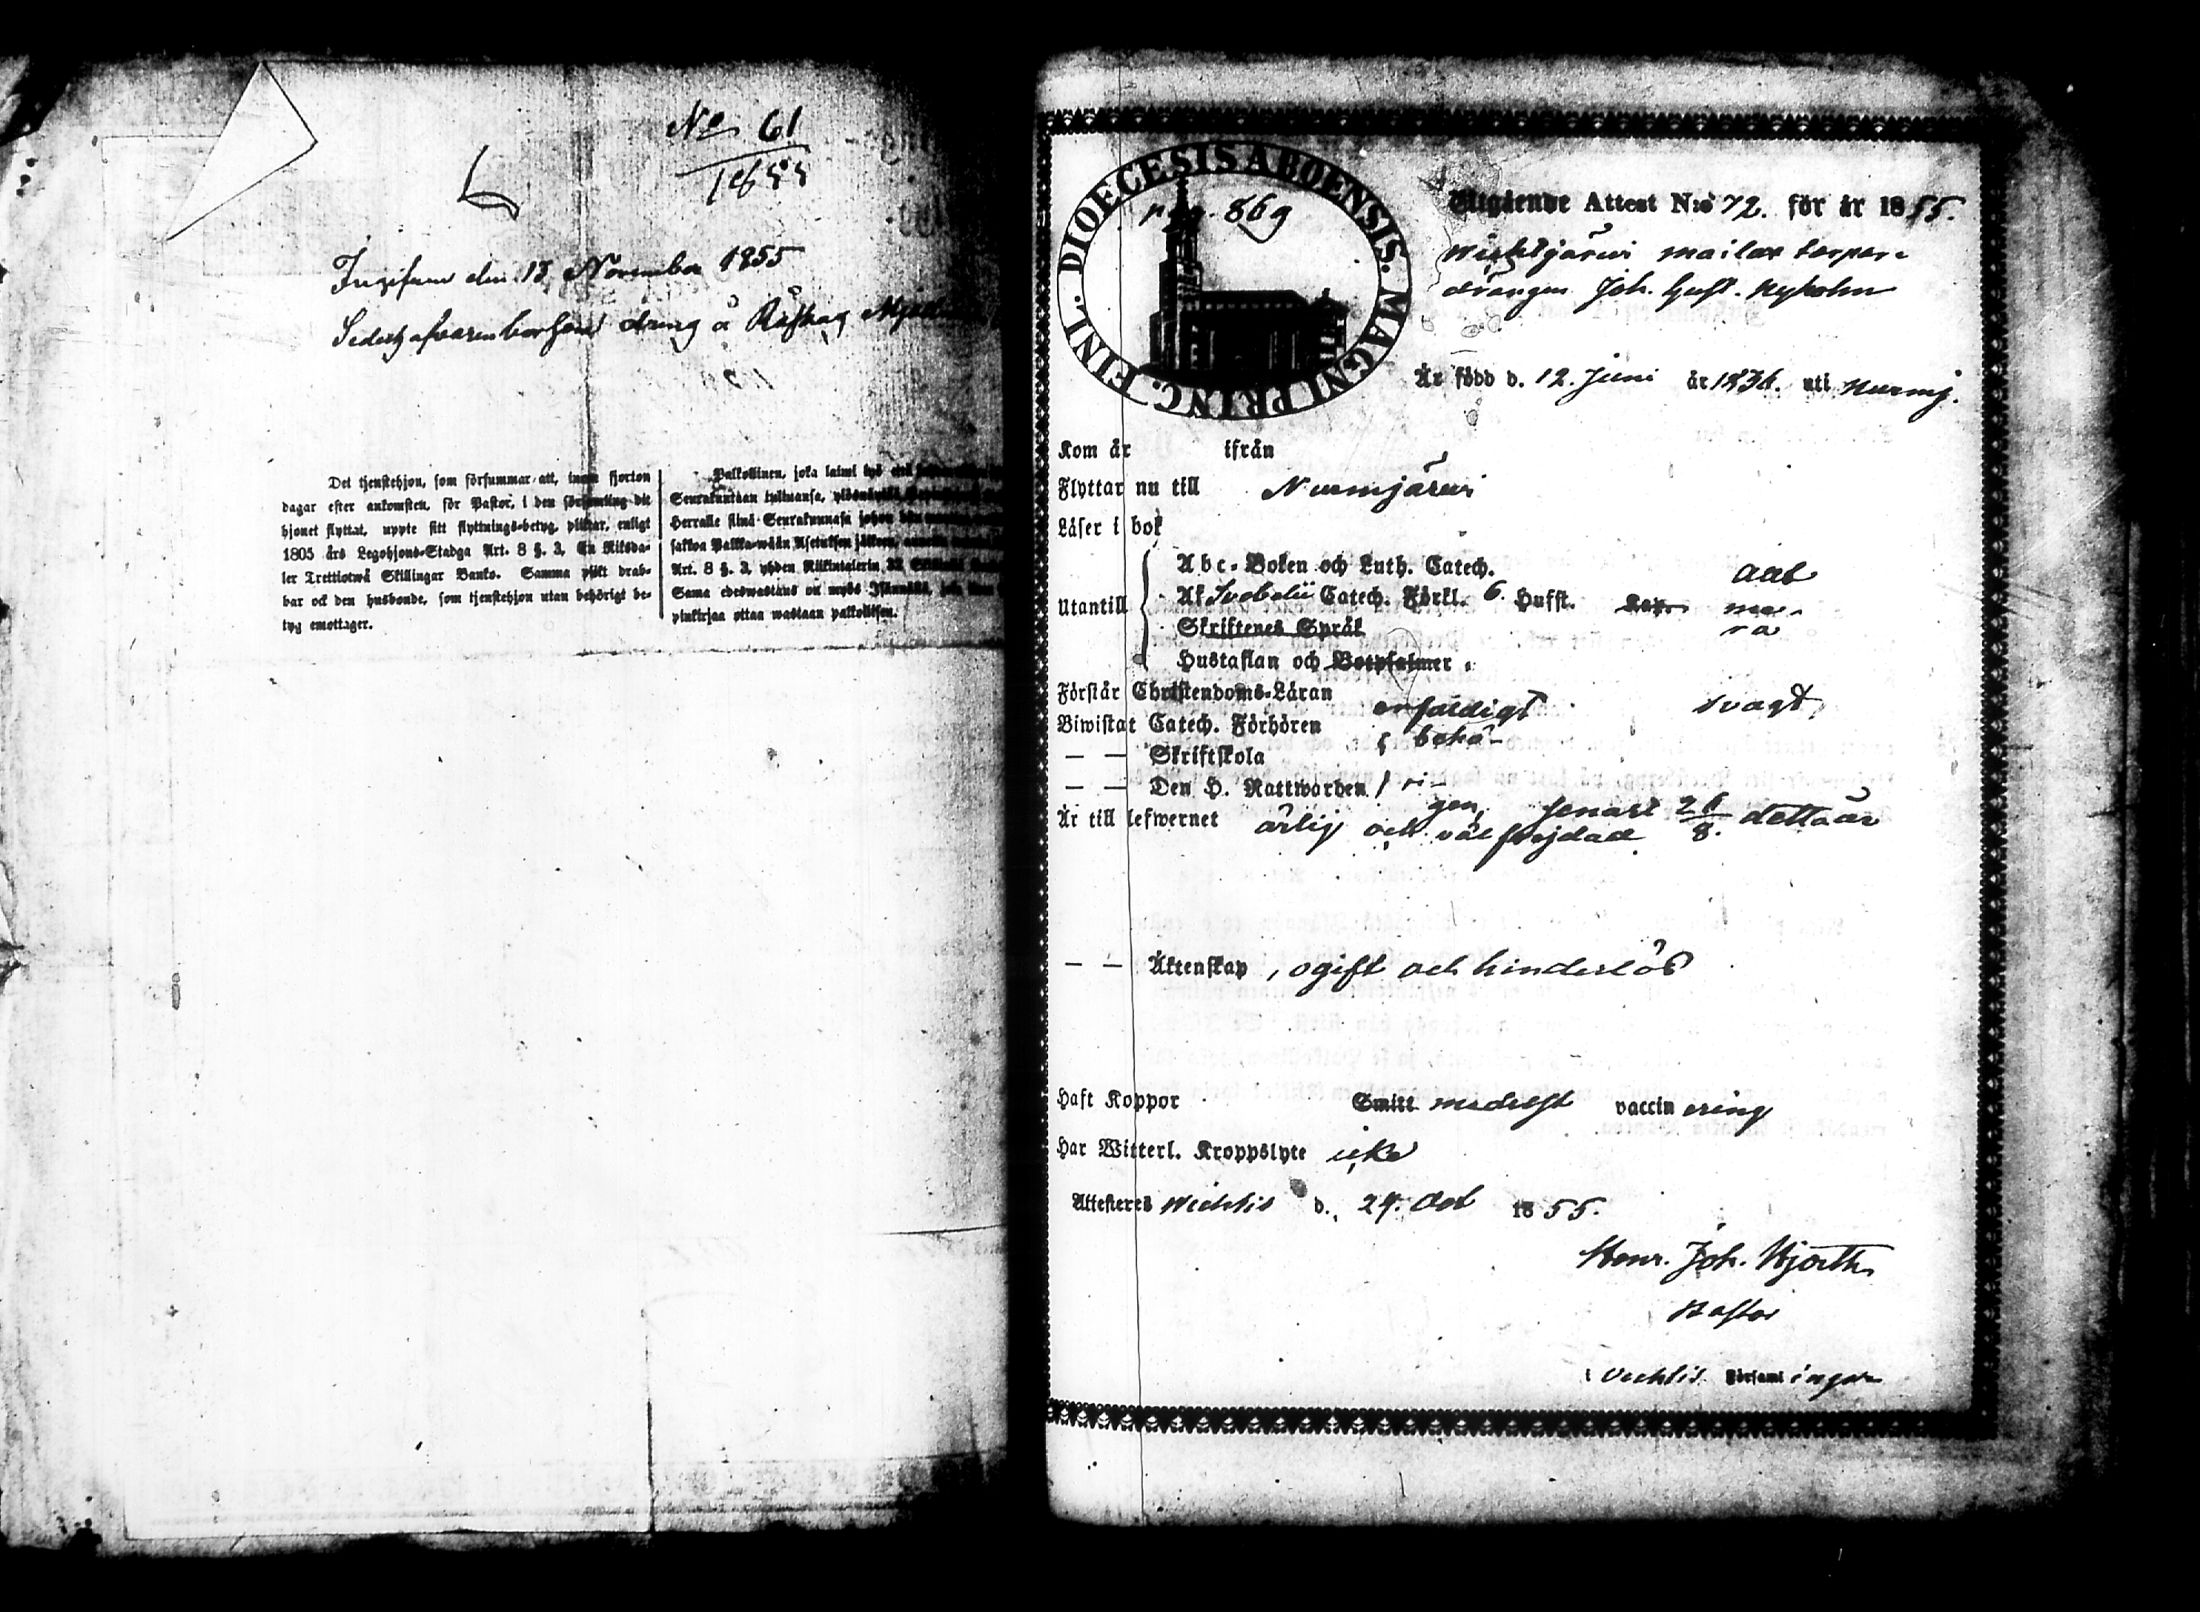 No 61
1855
Ingifven den 13 November 1855
dräng å
Det tjenstehjon, som försummar att, inom fjorton
dagar efter ankomsten, för Pastor, i den församling dit
hjonet flyttat, uppte sitt flyttnings-betyg, pliktar, enligt
1805 års Legohjons-Stadga Art. 8 §. 3, En Riksda-
ler Trettiotwå Skillingar Banko. Samma plikt drab-
bar ock den husbonde, som tjenstehjon utan behörigt be-
tyg emottager.
Palkollinen, joka laimi lyö että
Seurakuntaan tultuansa,
Herralle siinä Seurakunnasa johon hän
sakkoa Palkka-wään Asetuksen jälkeen,
Art. 8 §. 3, yhden Riikintalerin 32
Sama edeswastaus on myös Isännällä, joka
pinkirjaa ottaa wastaan palkollisen.
DIOECESIS ABOENSIS. MAGNI PRINC. FINL.
pag. 869
Utgående Attest N:o 72. för år 1855.
Wichtijärwi Mailax torpare
drängen Joh. Gust. Nyholm
Är född d. 12. Juni år 1836. uti Nurmj.
Kom år ifrån
Flyttar nu till Nurmijärwi
Läser i bok
Abc-Boken och Luth. Catech.
Utantill Af Svebelii Catech. Förkl. 6 Hufst.
Skriftenes Språk
Hustaflan och Botpsalmer
Förstår Christendoms-Läran enfaldigt svagt
Biwistat Catech. Förhören behö-
— — Skriftskola
— — Den H. Nattwarden ri-
gen, senast 26/8. detta år
Är till lefwernet ärlig och väl frejdad
— — Äktenskap, ogift och hinderlös
Haft Koppor Smitt medelst vaccinering
Har Witterl. Kroppslyte icke
Attesteras Wichtis d. 29. Oct 1855.
Henr. Joh. Hjorth
Pastor
i Vichtis Församlingar